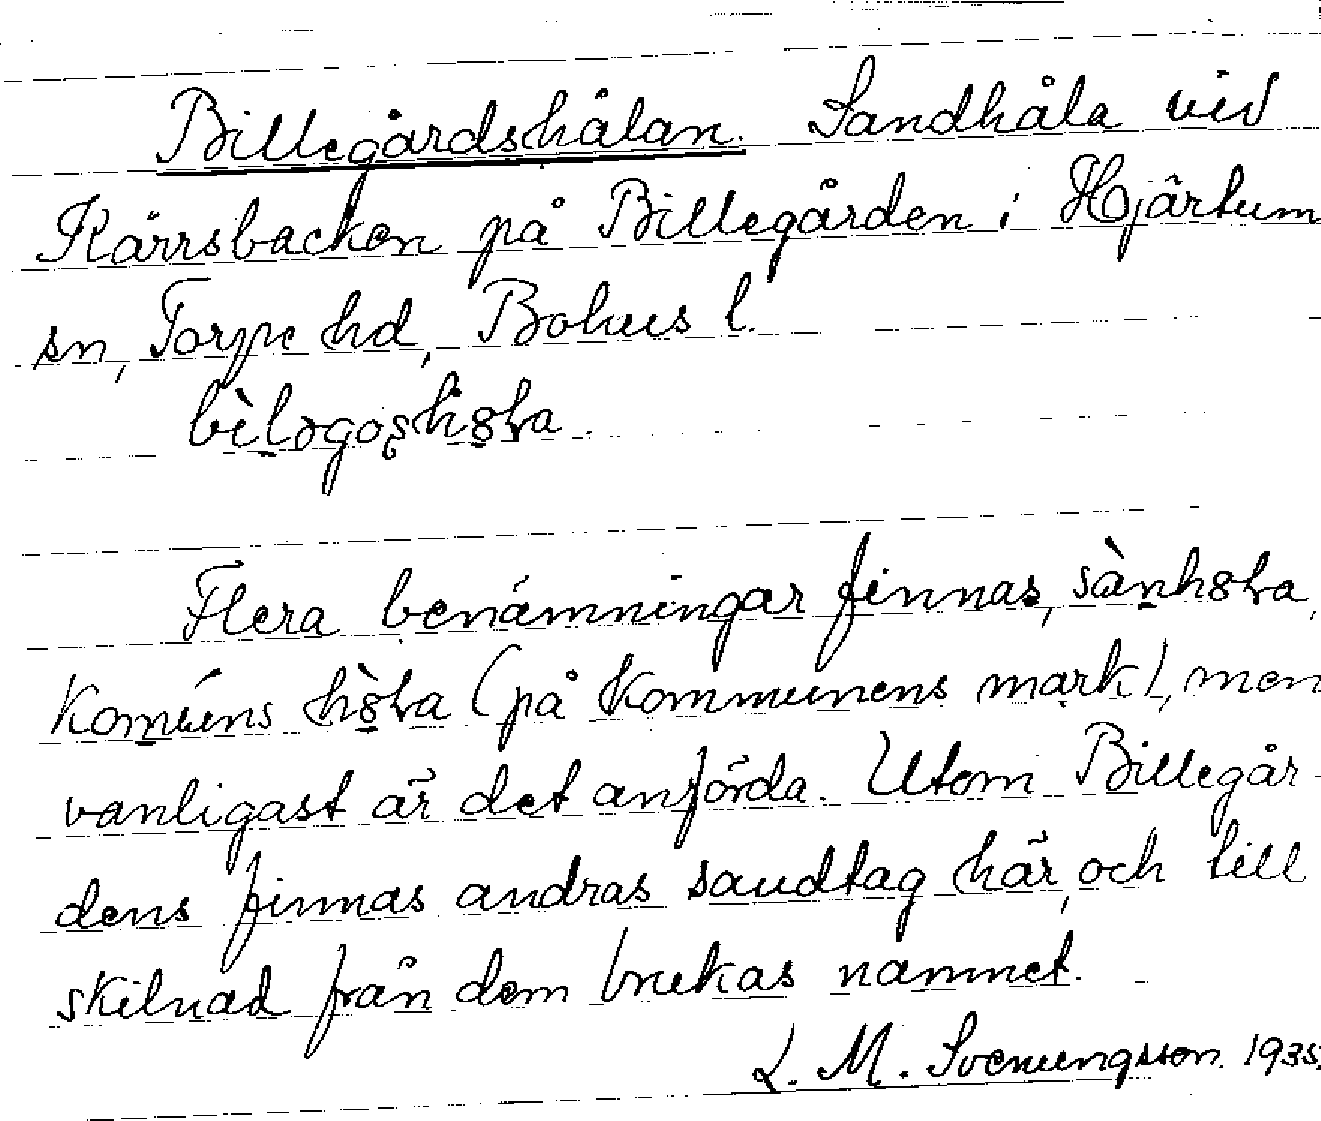 Billegårdshålan. Sandhåla vid
Kärrsbacken på Billegården i Hjärtum
sn, Torpe hd, Bohus l.
Flera benämningar finnas,
(på kommunens mark), men
vanligast är det anförda. Utom Billegår-
dens finnas andras sandtag här, och till
skilnad från dem brukas namnet.
L. M. Svenungsson 1935.